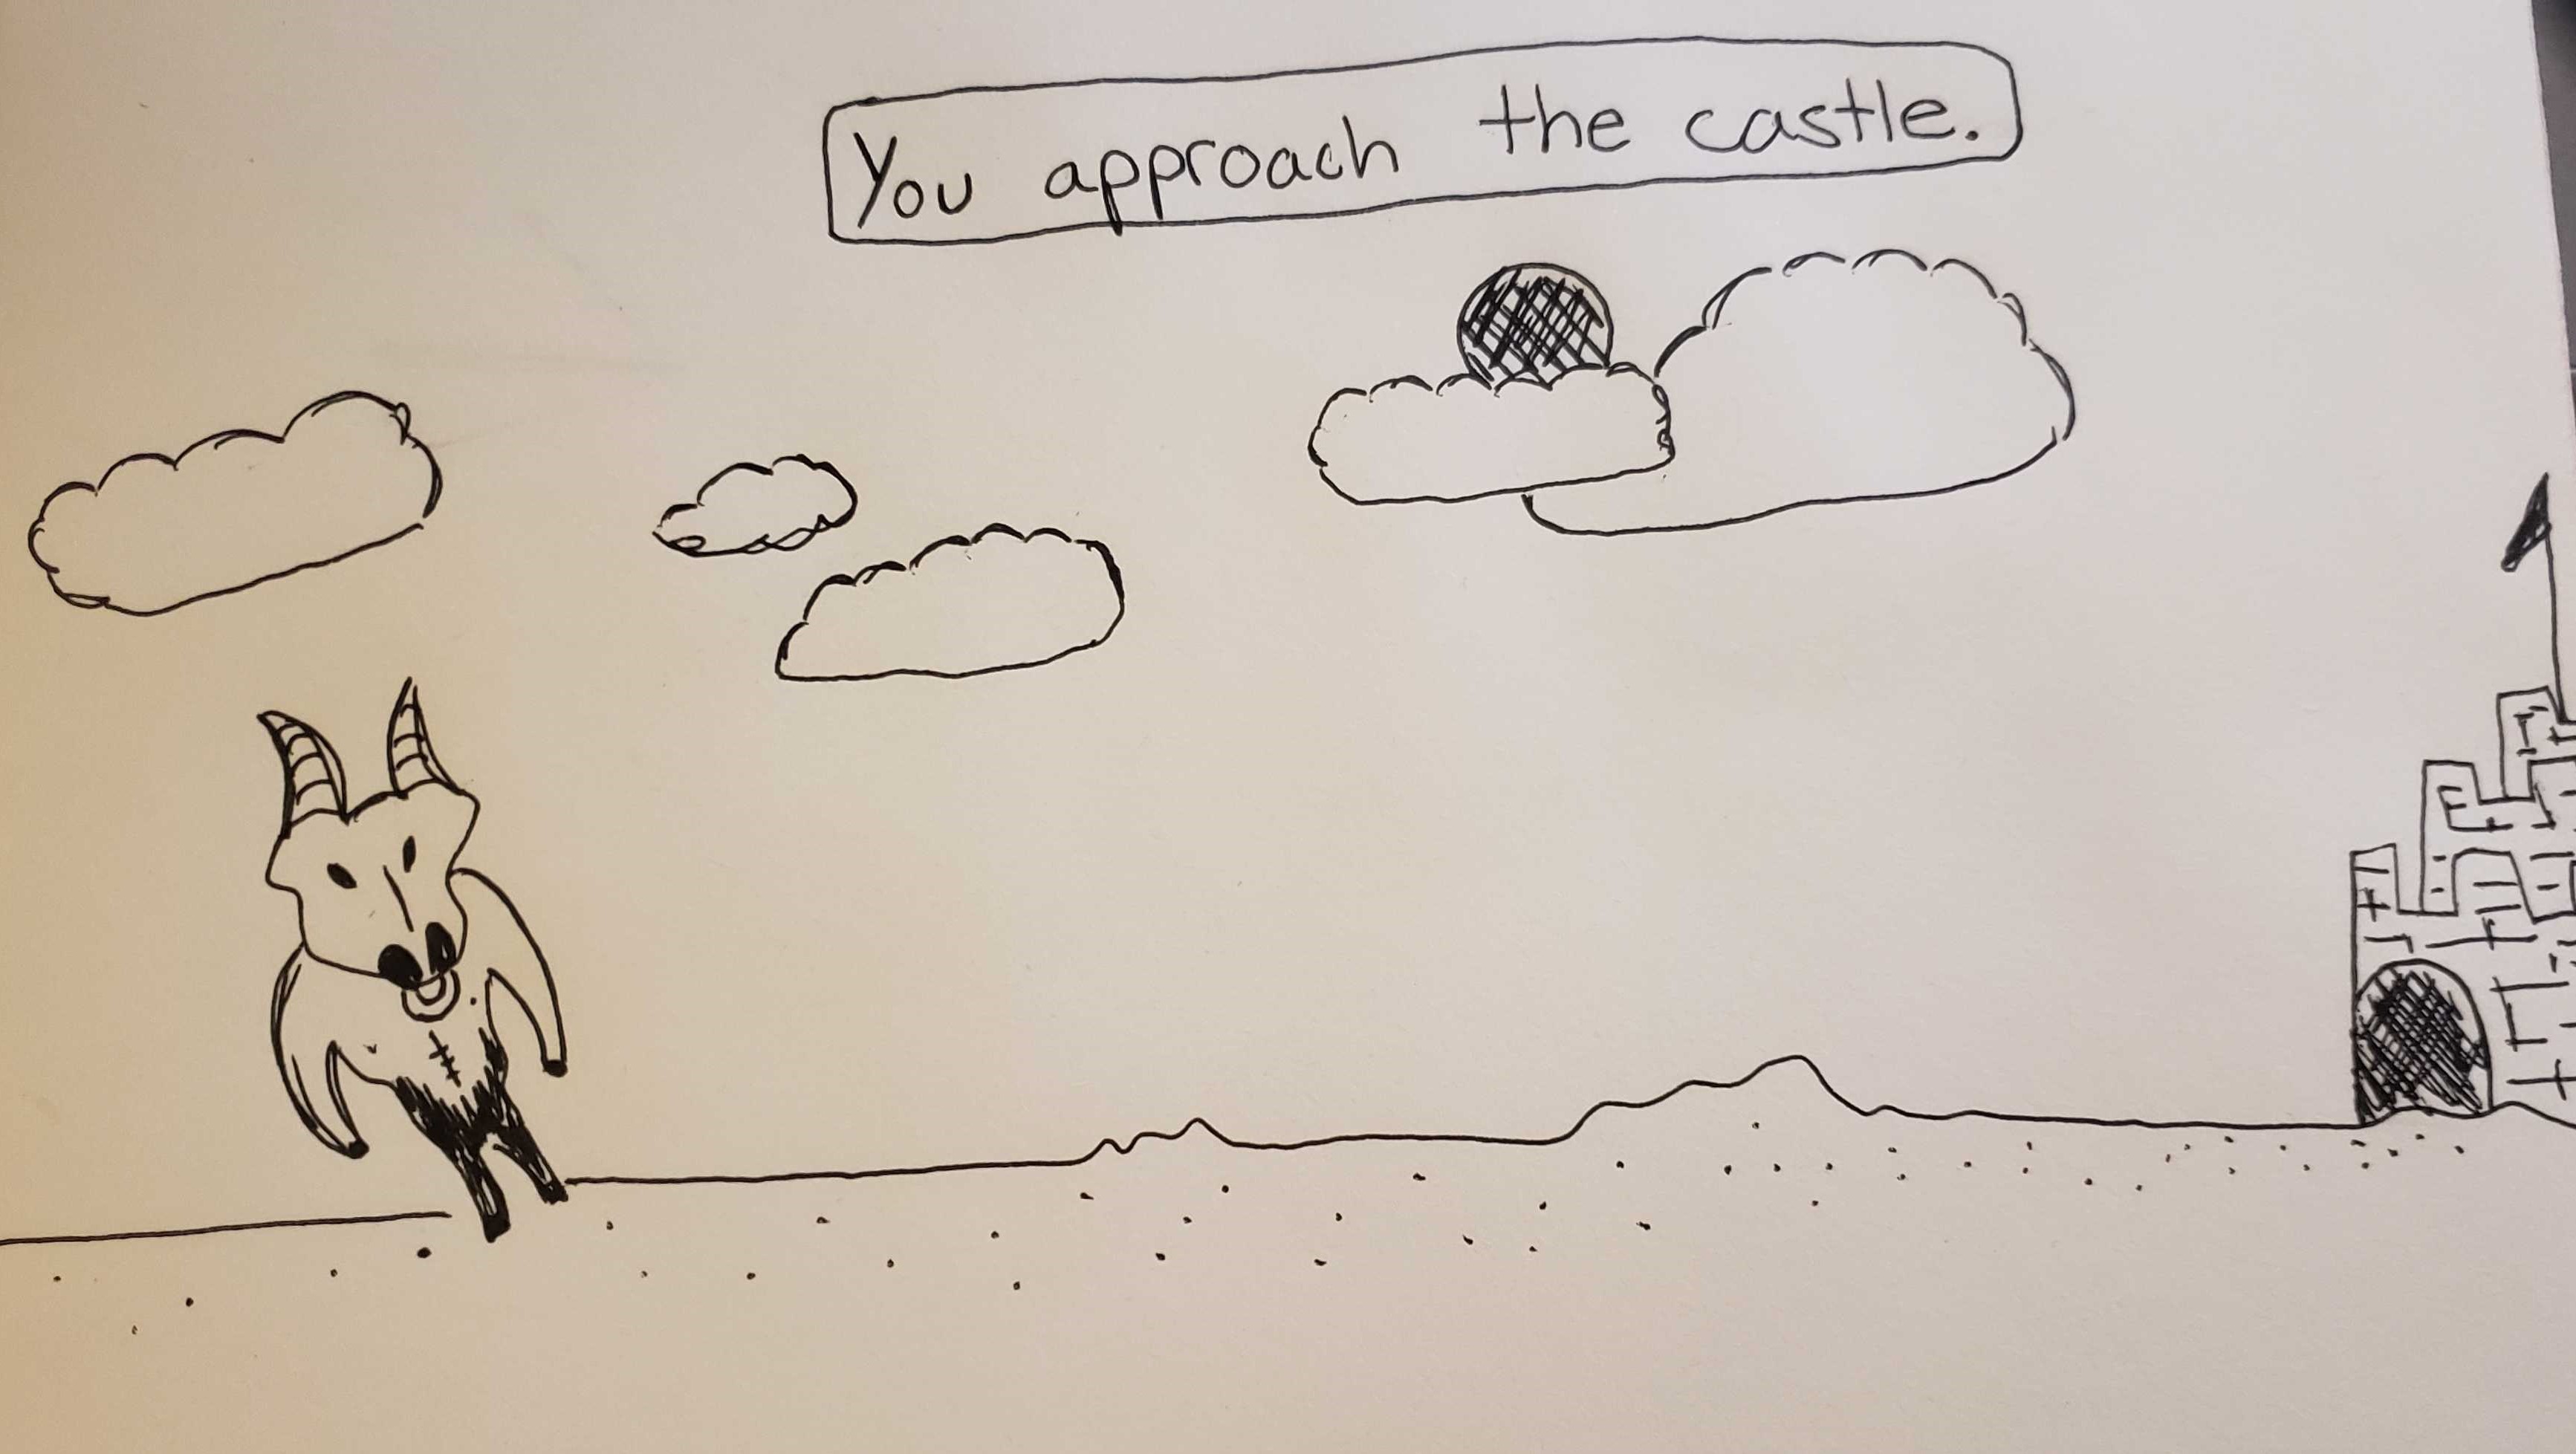 You approach the castle.